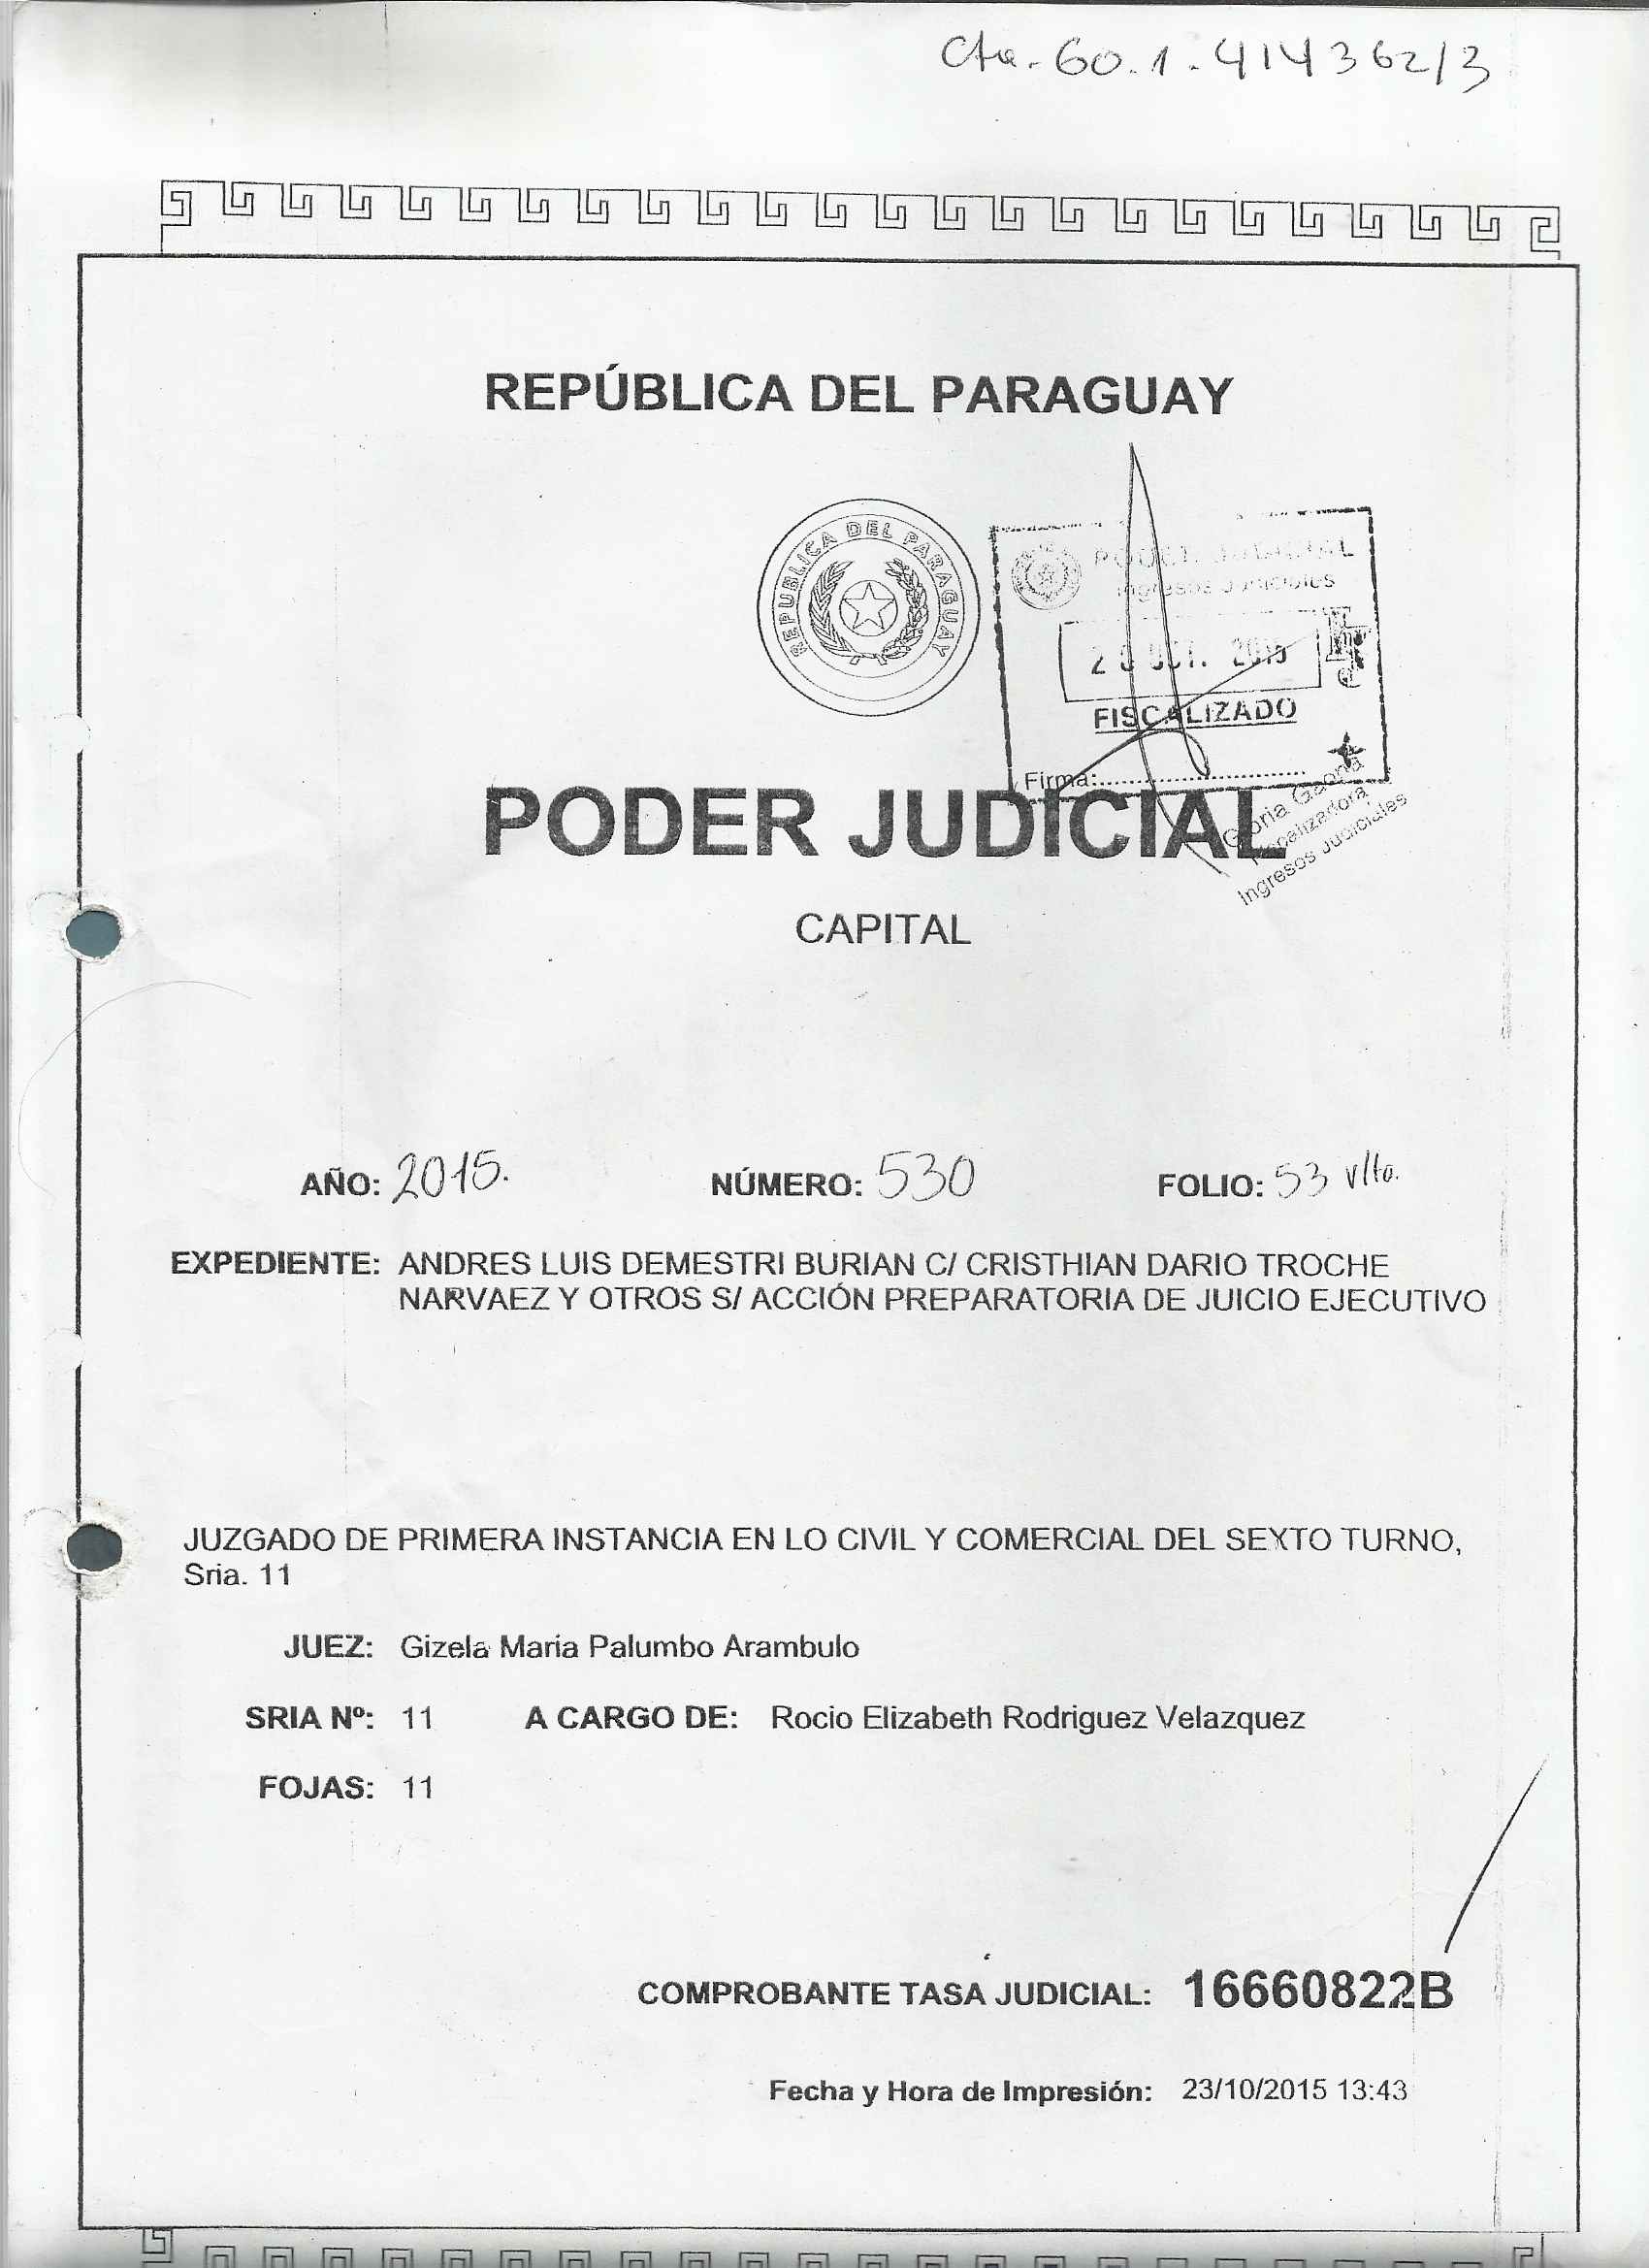 Cta. 60.1.414362/3
REPÚBLICA DEL PARAGUAY
REPUBLICA DEL PARAGUAY
PODER JUDICIAL
Ingresos Judiciales
OCT. 2015
FISCALIZADO
Firma:
Gloria Gaona
Fiscalizadora
Ingresos Judiciales
PODER JUDICIAL
CAPITAL
AÑO: 2015. NÚMERO: 530 FOLIO: 53 vlto.
EXPEDIENTE: ANDRES LUIS DEMESTRI BURIAN C/ CRISTHIAN DARIO TROCHE
NARVAEZ Y OTROS S/ ACCIÓN PREPARATORIA DE JUICIO EJECUTIVO
JUZGADO DE PRIMERA INSTANCIA EN LO CIVIL Y COMERCIAL DEL SEXTO TURNO,
Sria. 11
JUEZ: Gizela Maria Palumbo Arambulo
SRIA Nº: 11 A CARGO DE: Rocio Elizabeth Rodriguez Velazquez
FOJAS: 11
COMPROBANTE TASA JUDICIAL: 16660822B
Fecha y Hora de Impresión: 23/10/2015 13:43